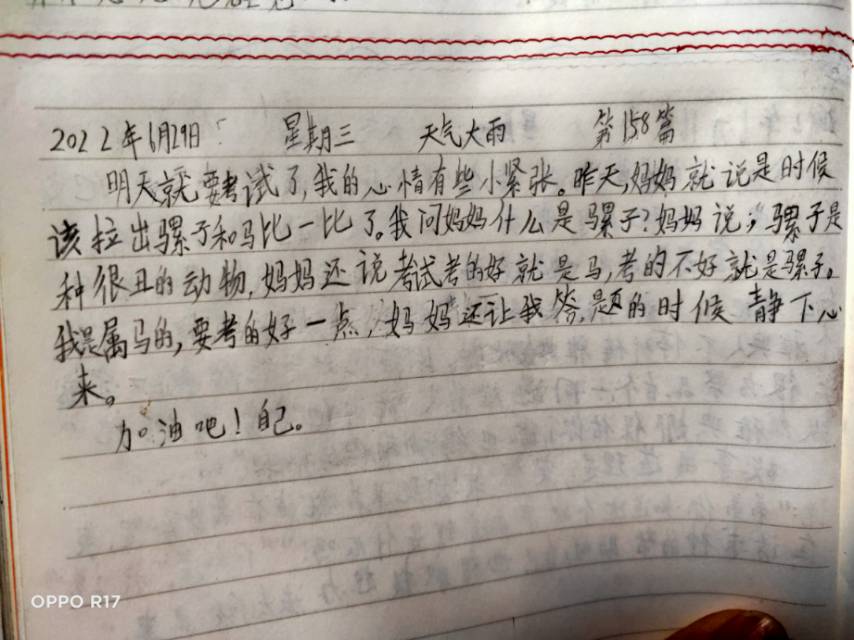 2022年6月29日 星期三 天气大雨 第158篇
明天就要考试了,我的心情有些小紧张。昨天,妈妈就说是时候
该拉出骡子和马比一比了。我问妈妈什么是骡子?妈妈说;骡子是
种很丑的动物,妈妈还说考试考的好就是马,考的不好就是骡子。
我是属马的,要考的好一点,妈妈还让我答题的时候静下心
来。
加油吧!自己。
OPPO R17